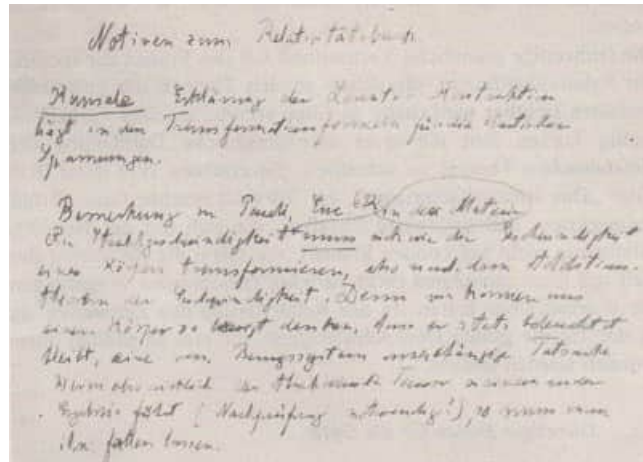 Notizen zum Relativitätsbuch
Kausale Erklärung der Lorentz-Kontraktion
liegt in den Transformationsformeln für die elastischen
Spannungen.
Bemerkung zu Pauli, Enc.
Die Strahlgeschwindigkeit muss sich wie die Geschwindigkeit
eines Körpers transformieren, also nach dem Additions-
theorem der Geschwindigkeit. Denn wir können uns
einen Körper so bewegt denken, dass er stets beleuchtet
bleibt, eine vom Bezugssystem unabhängige Tatsache
Wenn also wirklich der Tensor zu einem andern
Ergebnis führt (Nachprüfung notwendig!), so muss man
ihn fallen lassen.